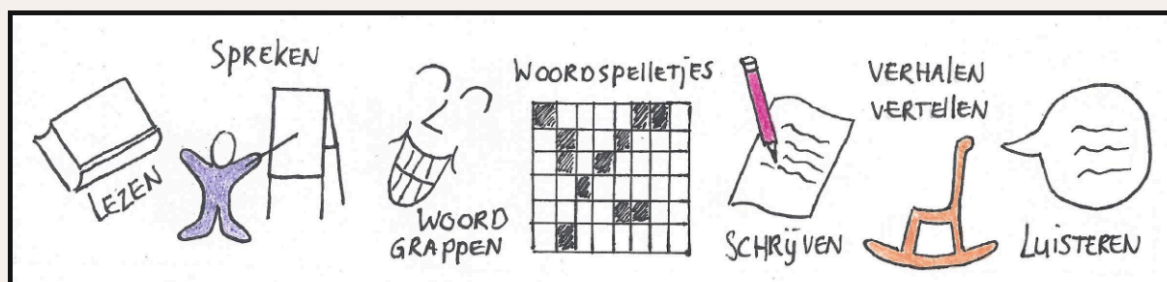 LEZEN
SPREKEN
WOORD
GRAPPEN
WOORDSPELLETJES
SCHRIJVEN
VERHALEN
VERTELLEN
LUISTEREN